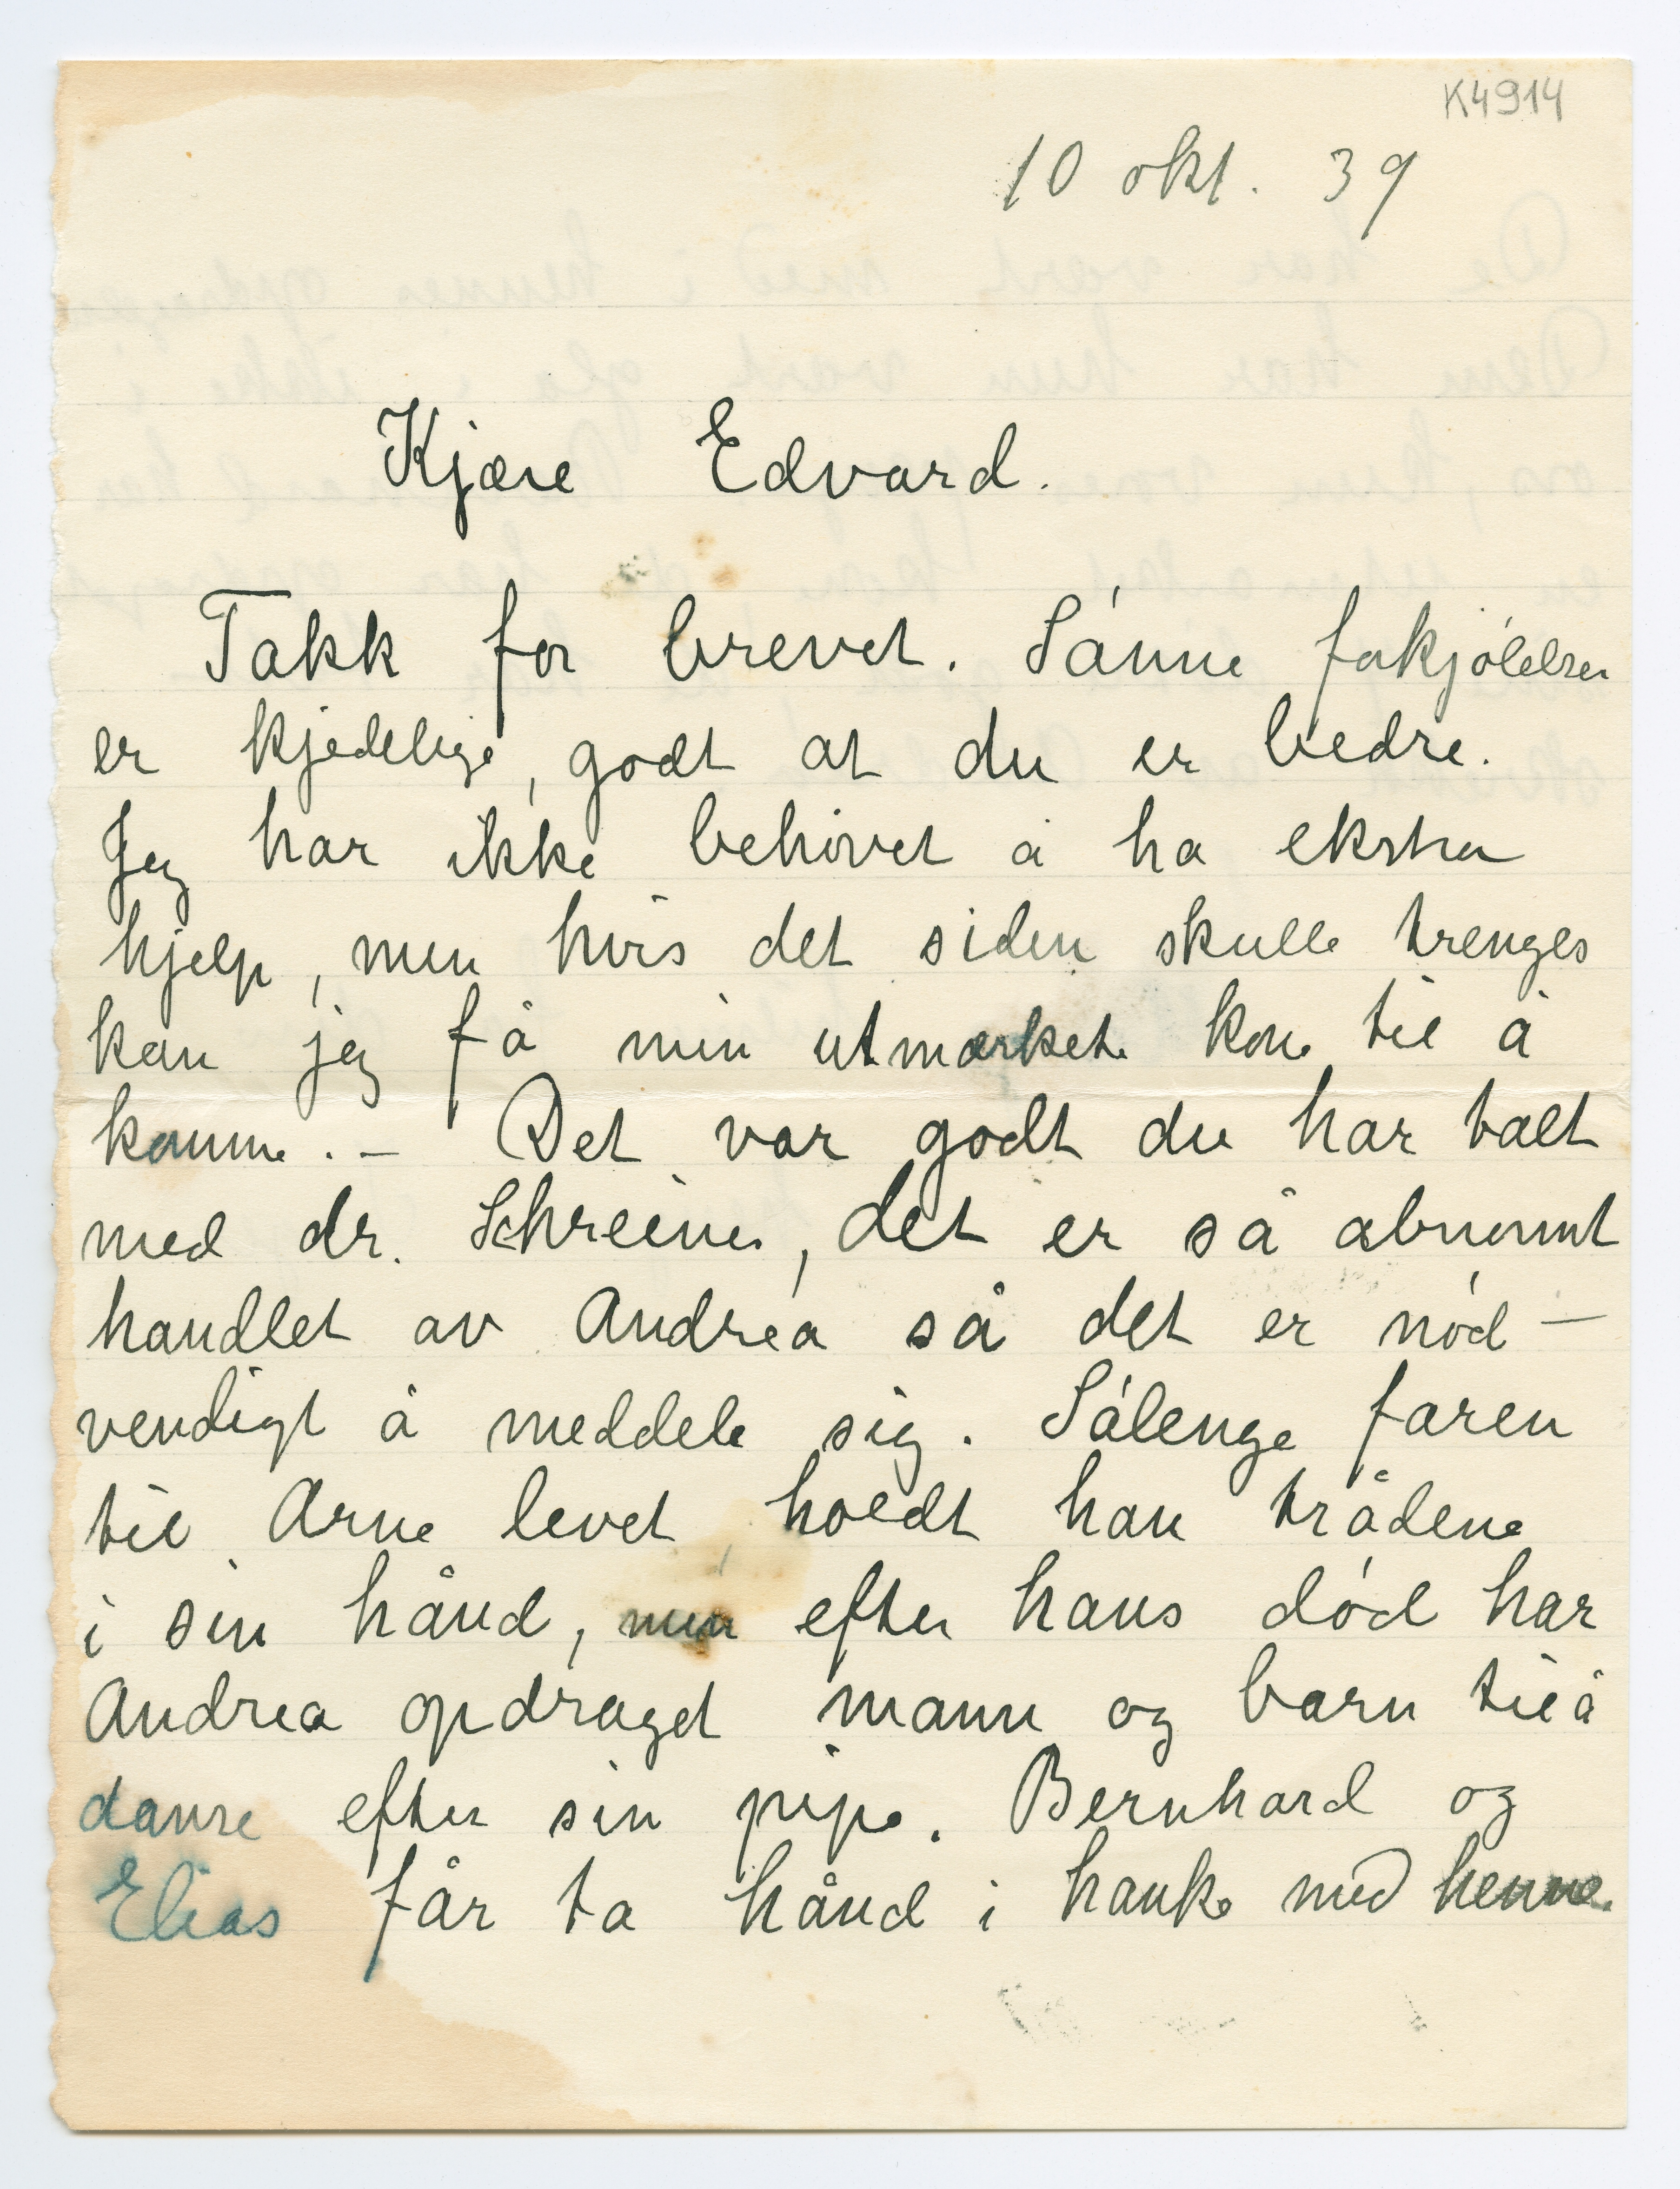 K4914
10 okt. 39
Kjære Edvard.
Takk for brevet. Sánne forkjólelser
er kjedelige, godt at du er bedre.
Jeg har ikke behóvet å ha ekstra
hjelp, men hvis det siden skulle trenges
kan jeg få min utmærkete kone til å
komme. – Det var godt du har talt
med dr. Schreiner, det er så abnormt
handlet av Andrea så det er nód–
vendigt å meddele sig. Sålenge faren
til Arne levet holdt han trådene
i sin hånd, men efter hans dód har
Andrea opdraget mann og barn til å
danse efter sin pipe. Bernhard og
Elias får ta hånd i hanke med henne.